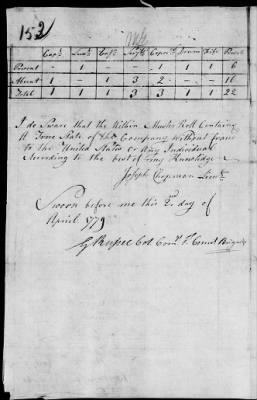 152
Capt Lieut Ens Serjts Corpls Drum Fife Privts
Present - 1 - - 1 1 1 6
Absent 1 - 1 3 2 - - 16
Total 1 1 1 3 3 1 1 22
I do Sware that the Within Muster Roll Containg
A True State of the Company without fraud
to the United States or Any Individual
According to the best of my Knowledge
Joseph Chapman Lieut.
Sworn before me this 2nd day of
April 1779
Col Comt